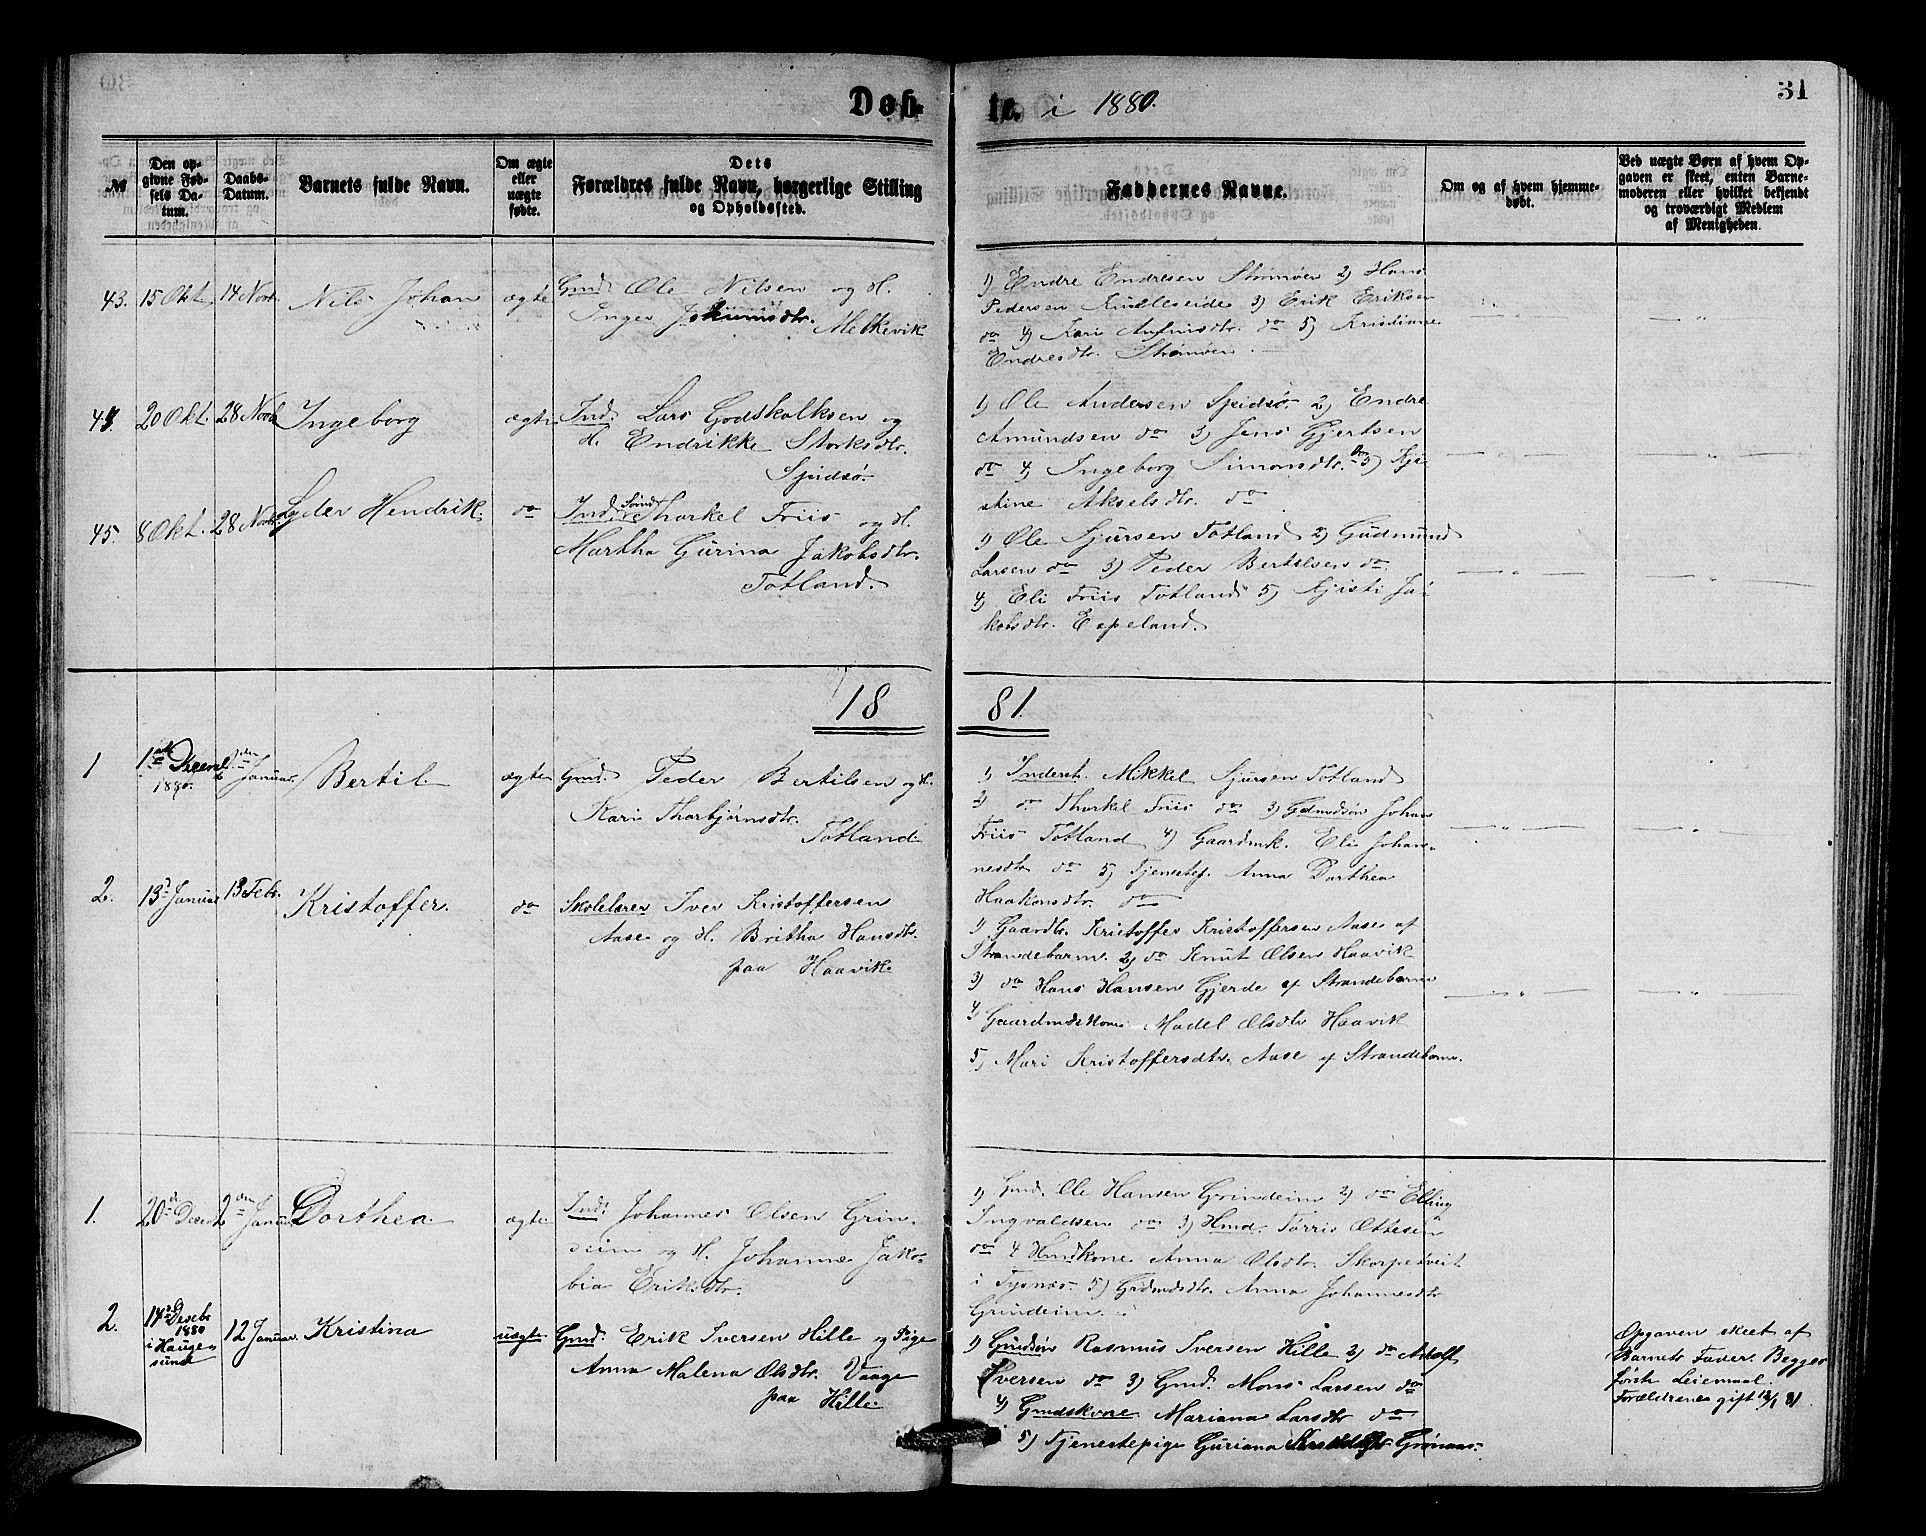 Døb-
te. i 1880.
31
№
Den op-
givne Fød-
sels Da-
tum.
Daabs-
Datum.
Barnets fulde Navn.
Om ægte
eller
uægte
fødte.
Dets
Forældres fulde Navn, borgerlige Stilling
og Opholdssted.
Faddernes Navne.
Om og af hvem hjemme-
døbt.
Ved uægte Børn af hvem Op-
gaven er skeet, enten Barne-
moderen eller hvilket bekjendt
og troværdigt Medlem
af Menigheden.
43. 15 Okt. 14 Novb. Nils Johan ægte
Gmd. Ole Nilsen og H.
Inger Melkevik
1) Endre Endresen Strømøen 2) Hans
Pedersen Kulleseide 3) Erik Eriksen
do 4) Kari do 5) Kristiane
Endresdtr. Strømøen.
44. 20 Okt. 28 Novb. Ingeborg ægte
Ind. Lars Godskalksen og
H. Endrikke Storksdtr.
Spidsø.
1) Ole Andersen Spidsø. 2) Endre
Amundsen do 3) Jens Gjertsen
do 4) Ingeborg Simonsdtr. do 5) Kji-
stine Akselsdtr. do
45. 8 Okt. 28 Novb. Lyder Hendrik do
Ind. Thorkel Friis og H.
Martha Gurina Jakobsdtr.
Totland.
1) Ole Sjursen Totland 2) Gudmund
Larsen do 3) Peder Bertelsen do.
4) Eli Friis Totland 5) Kjisti Ja-
kobsdtr. Espeland.
18 81.
1 1ste Decemb. 1880. Januar. Bertil ægte
Gmd. Peder Bertilsen og H.
Kari Thorbjørnsdtr.
Totland
1) Inderst. Mikkel Sjursen Totland
2) do Thorkel Friis do 3) Gdmdsøn Johan
Friis Totland 4) Gaardmk. Eli Johan-
nesdtr. do 5) Tjenestep. Anna Dorthea
Haakonsdtr. do
2. 13 Januar 13 Febr. Kristoffer. do
Skolelærer Iver Kristoffersen
Aase og H. Britha Hansdtr.
paa Haavik.
1) Gaardbr. Kristoffer Kristoffersen Aase af
Strandebarm. 2) do Knut Olsen Haavik
3) do Hans Hansen Gjerde af Strandebarm
4) Gaardmdskone Madel Olsdtr Haavik
5) Mari Kristoffersdtr. Aase af Strandebarm.
1. 20de Decemb. 2den Januar Dorthea. ægte
Ind. Johannes Olsen Grin-
deim og H. Johanne Jako-
bia Eriksdtr.
1) Gmd. Ole Hansen Grindeim 2) do Elling
Ingvaldsen do 3) Hmd. Tørris Ottesen
do 4 Hmdkone Anna Olsdtr. Skorpetveit
i Tysnæs 5) Grdmdsdtr. Anna Johannesdtr
Grindeim.
2. 14de Desebr 1880 i Haugesund 12 Januar. Kristina uægte
Gmd. Erik Iversen Hille og Pige
Anna Malena Olsdtr. Vaage
paa Hille.
1) Gmdsøn Rasmus Iversen Hille 2) do Adolf
Iversen do 3) Gmd. Mons Larsen do
4) Gmdskone Mariana Larsdtr do
5) Tjenestepige Guriana Grønaas.
Opgaven skeet af
Barnets Fader. Begges
første Leiemaal.
Forældrene gift 12/1 81